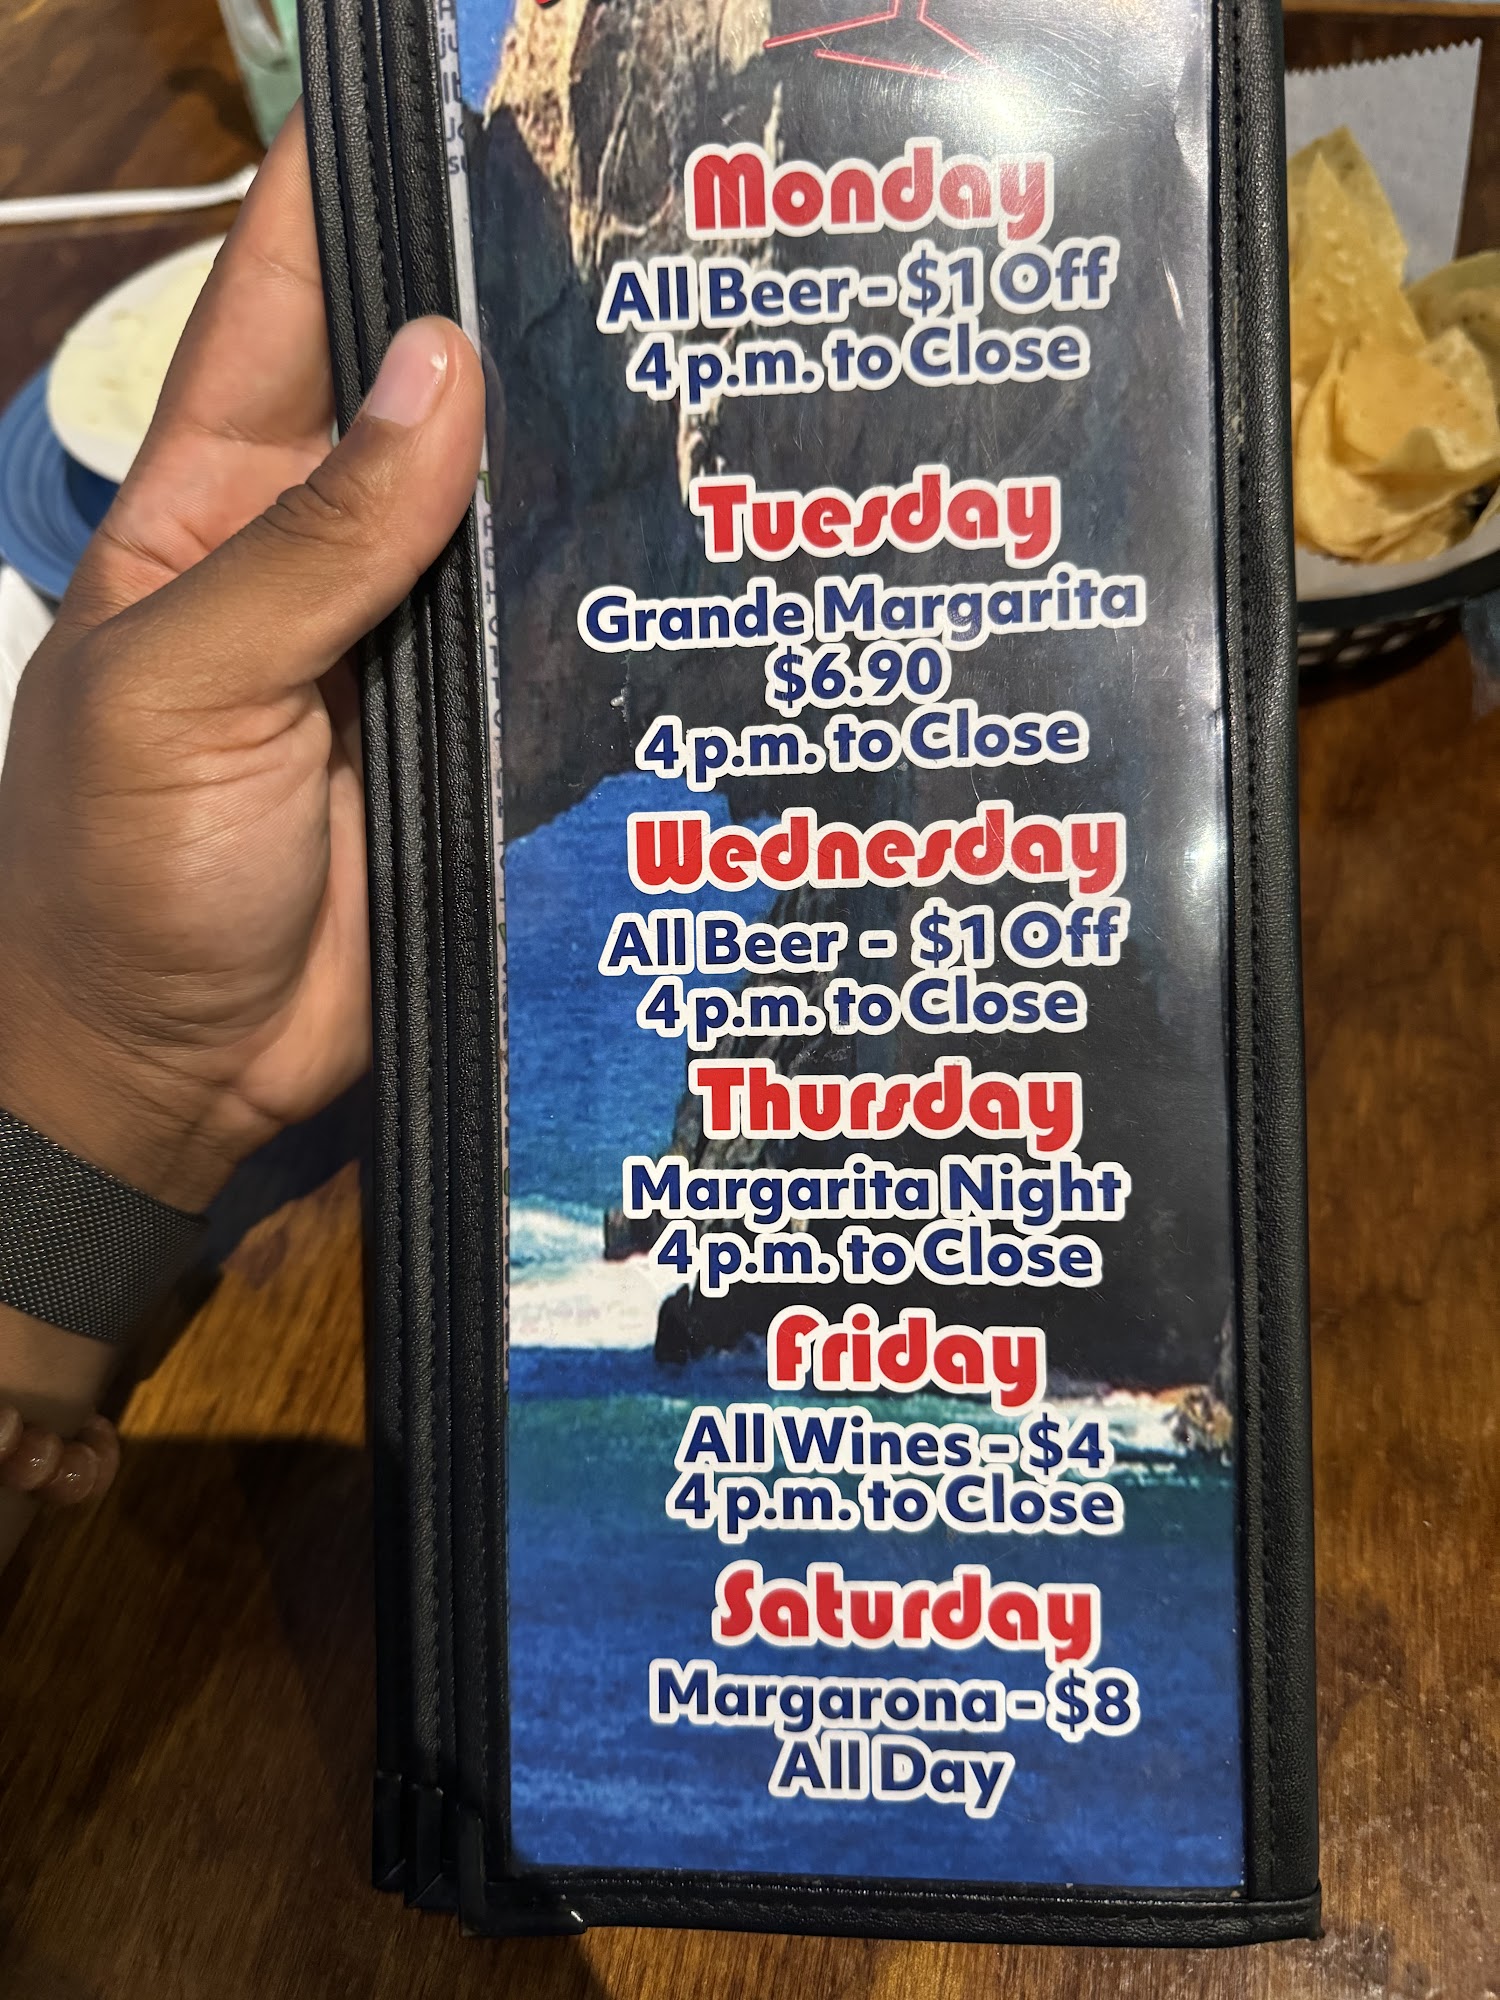 Monday
All Beer - $1 Off
4 p.m. to Close
Tuesday
Grande Margarita
$6.90
4 p.m. to Close
Wednesday
All Beer - $1 Off
4 p.m. to Close
Thursday
Margarita Night
4 p.m. to Close
Friday
All Wines - $4
4 p.m. to Close
Saturday
Margarona - $8
All Day